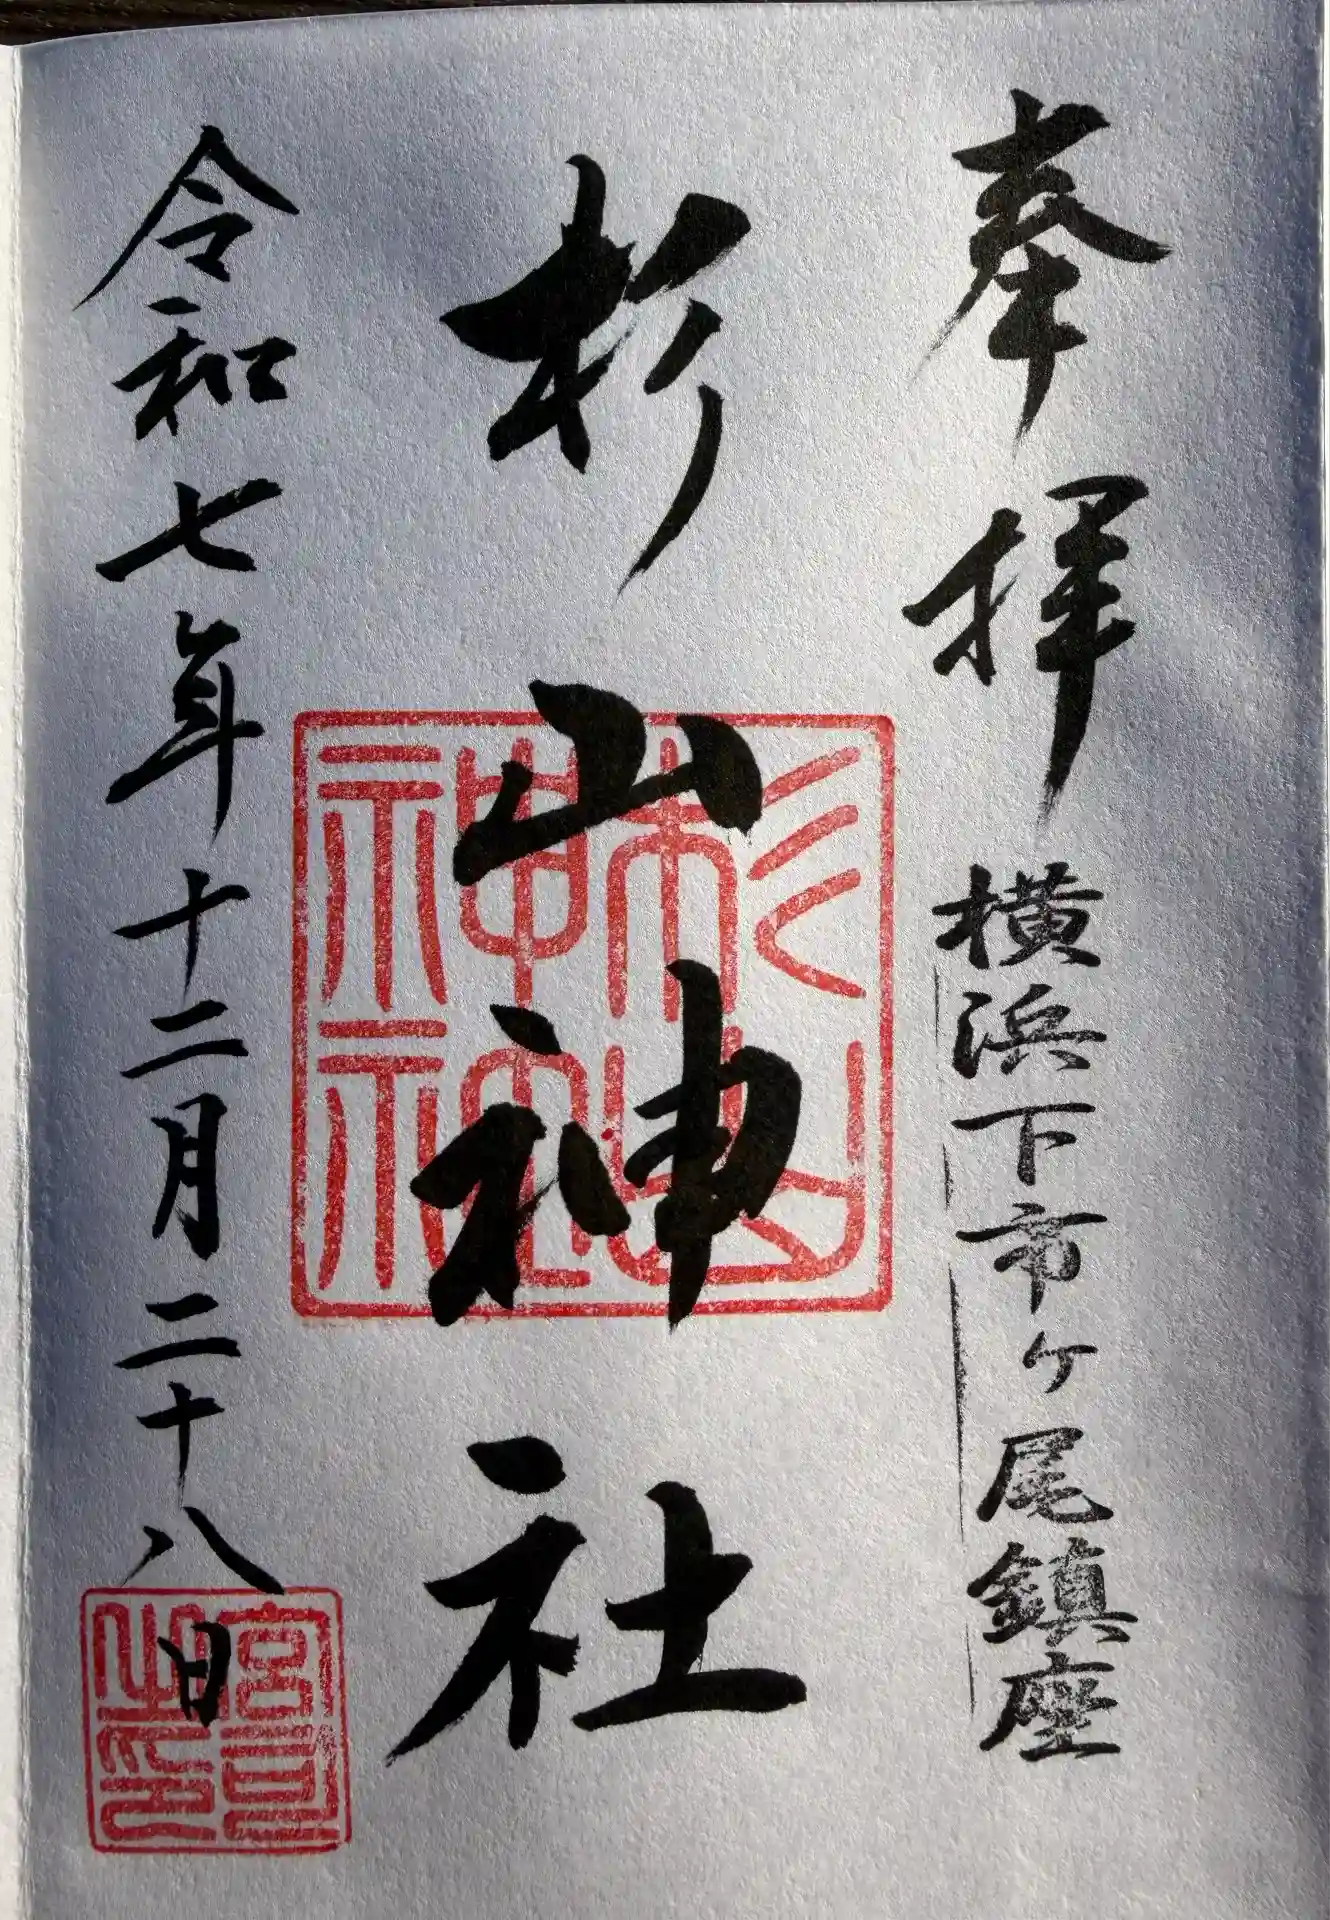 奉拝
横浜下市ケ尾鎮座
杉山神社
杉山神社
令和七年十二月二十八日
宮司之印